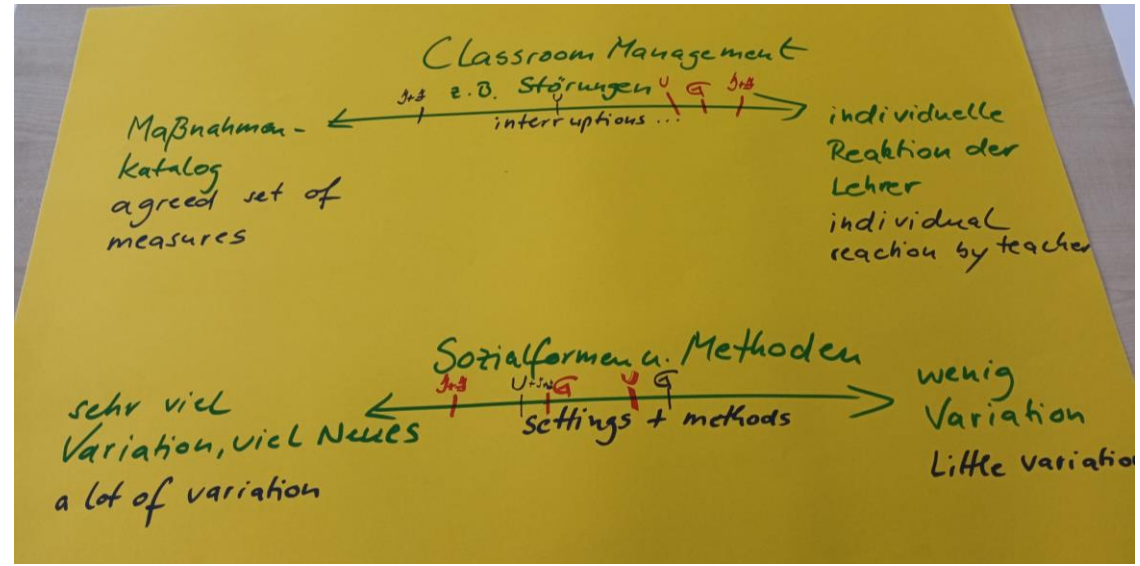 Classroom Management
z.B. Störungen U G J+J
J+J U
interruptions ...
Maßnahmen-
katalog
agreed set of
measures
individuelle
Reaktion der
Lehrer
individual
reaction by teacher
Sozialformen u. Methoden
U G U G
settings + methods
sehr viel
Variation, viel Neues
a lot of variation
wenig
Variation
Little variation